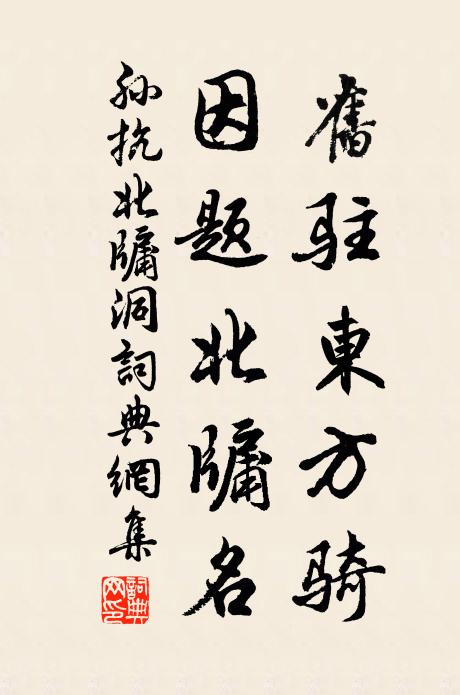 舊駐東方騎
因題北牖名
孙抗北牖洞詞典網集
詞典网印